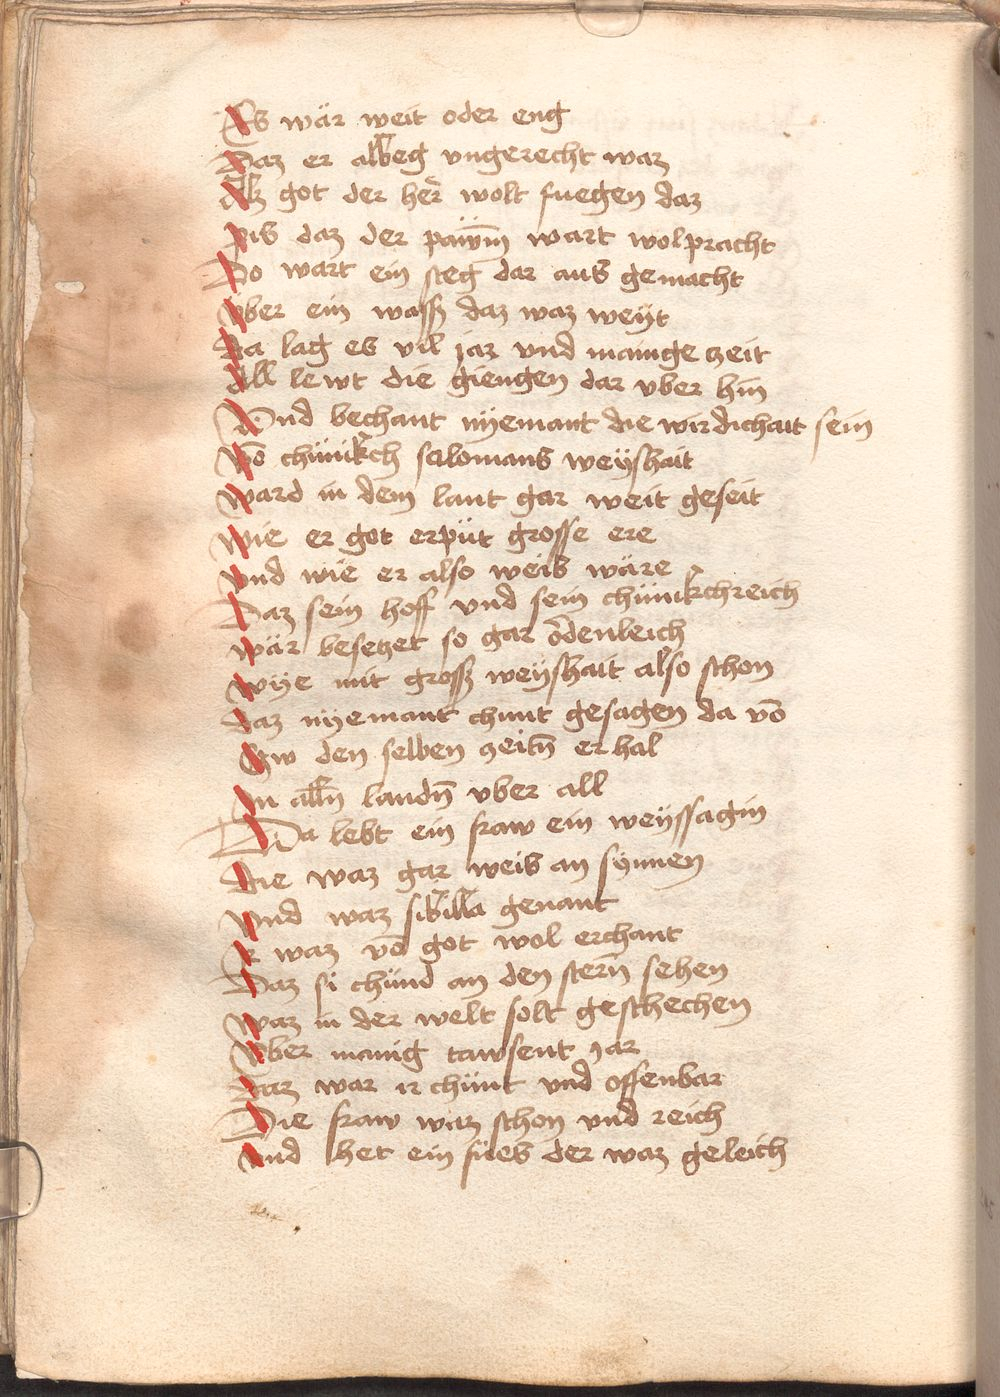 Es wär weit oder eng
Daz er albeg vngerecht waz
Alz got der her wolt fuegen daz
Pis daz der pawm̄ wart wolpracht
Do wart ein steg dar aus gemacht
vber ein wassz daz waz weyt
Da lag es vil jar vnd manige zeit
All lewt die giengen dar vber hin
Vnd bechant nyemant die wirdichait sein
Vō chünikch salomans weyshait
ward in dem lant gar weit geseit
wie er got erpüt grosse ere
vnd wie er also weis wäre
Daz sein hoff vnd sein chünikchreich
wär besetzet so gar ordenleich
wye mit grossz weyshait also schon
daz nyemant chunt gesagen da vō
Czw den selben zeitn̄ erhal
In alln̄ landn̄ vber all
Da lebt ein fraw ein weyssagin
die waz gar weis an synnen
vnd waz sibilla genant
Ir waz vō got wol erchant
Daz si chünd an den stern̄ sehen
waz in der welt solt geschechen
vber manig tawsent jar
daz war ir chünt vnd offenbar
Die fraw waz schon vnd reich
vnd het ein fues der waz geleich